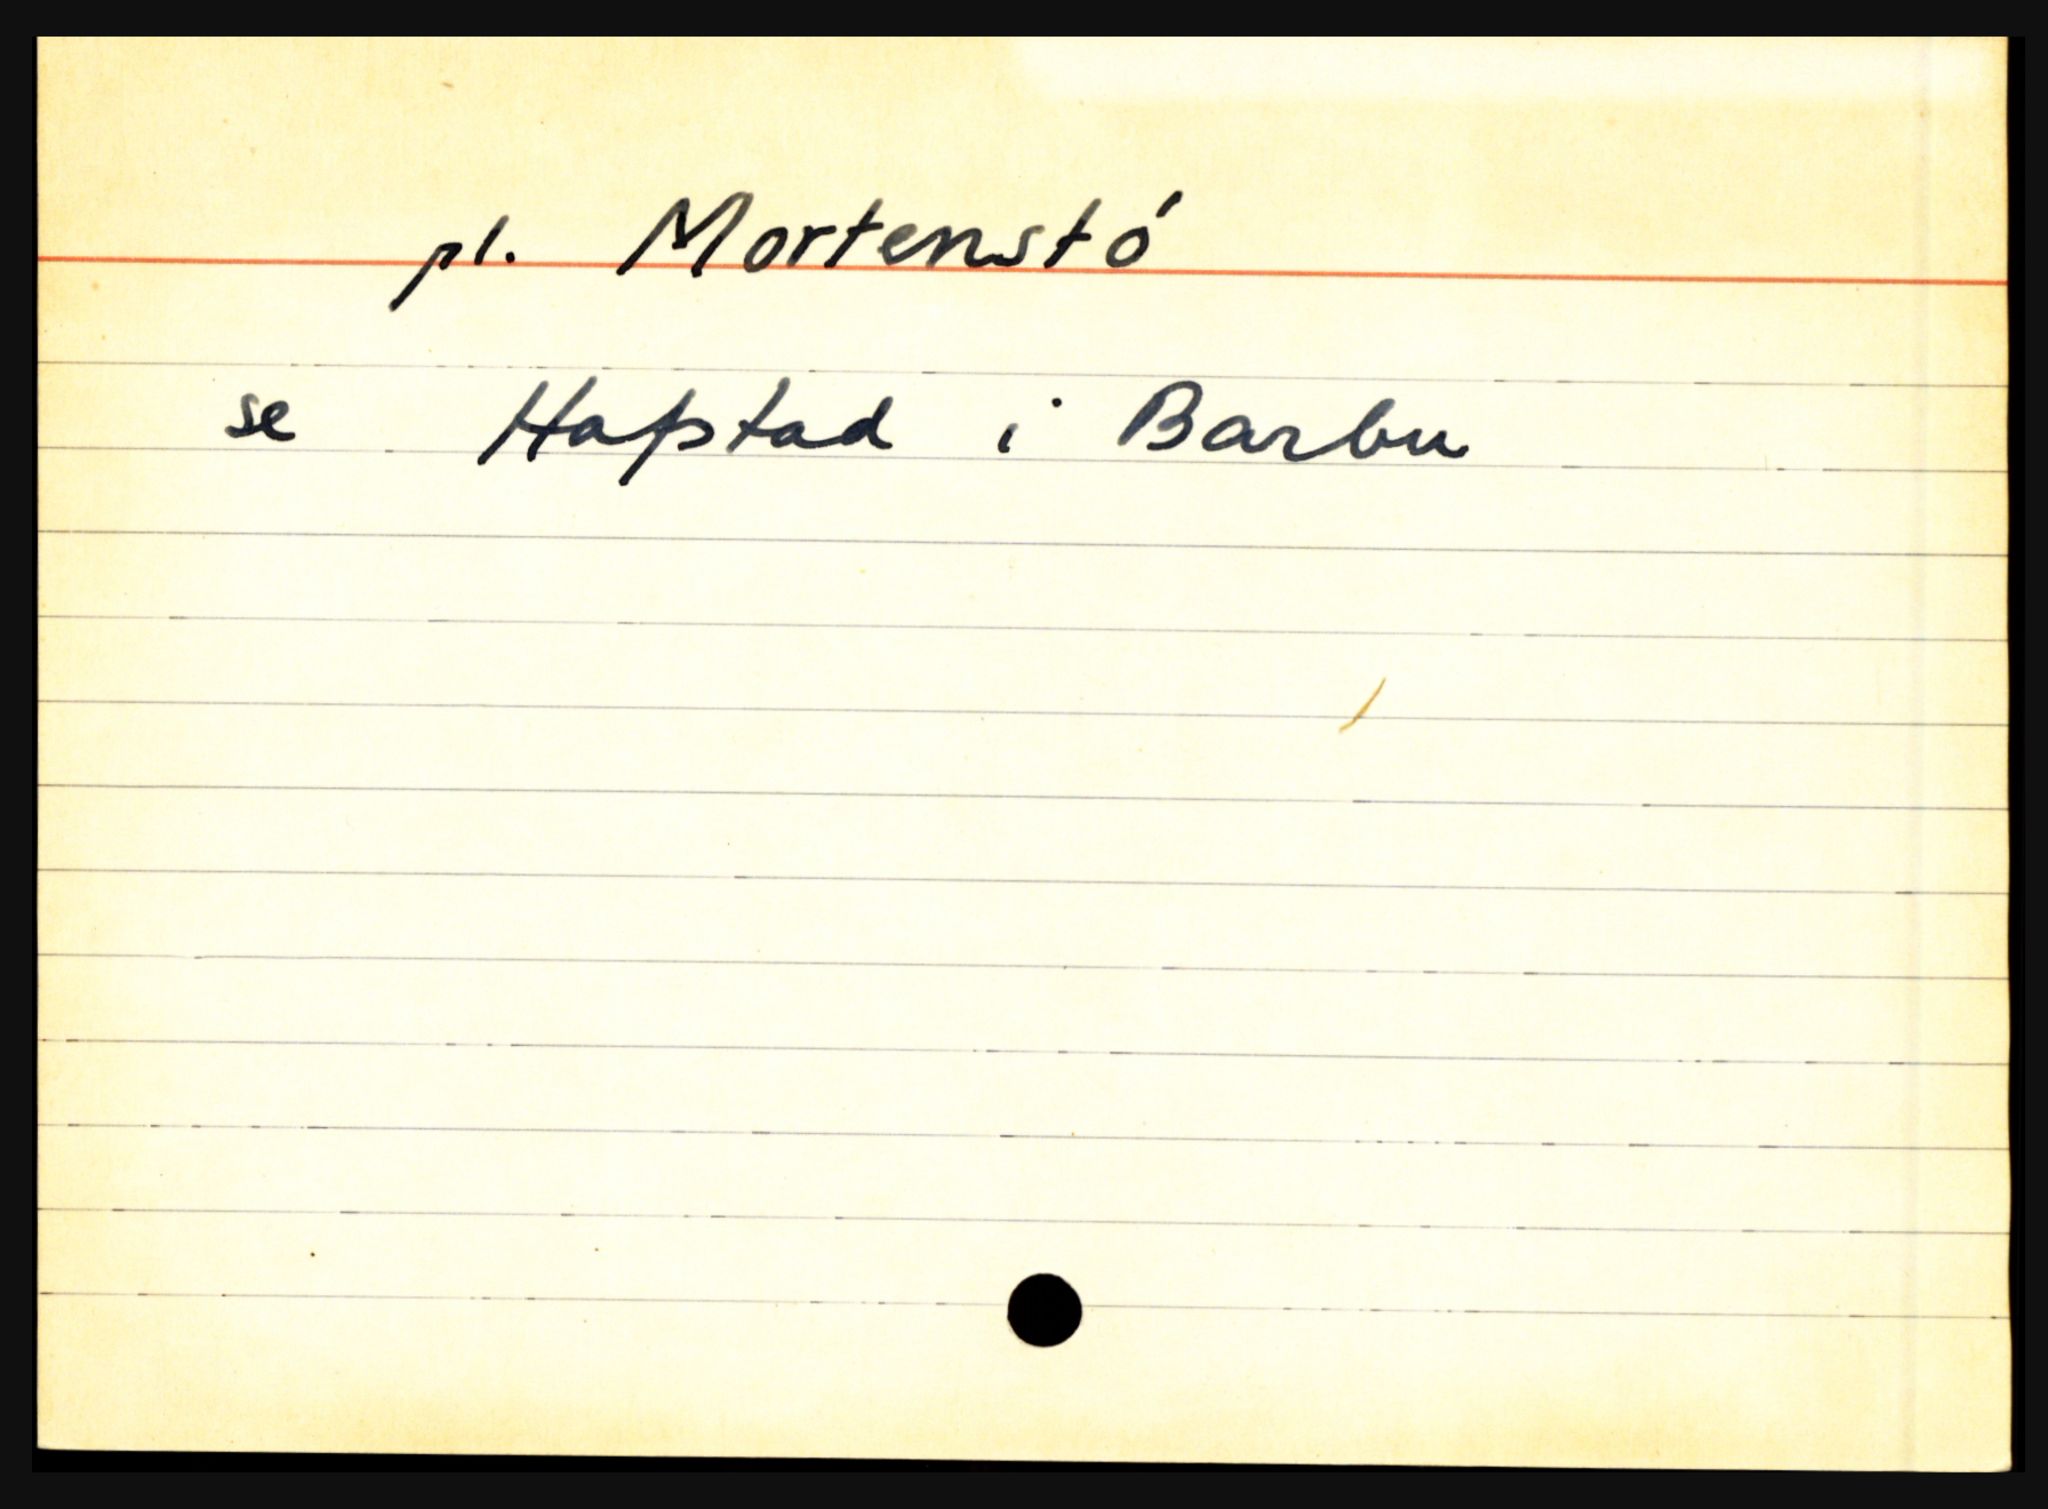 pl. Mortenstó
se Hafstad i Barbu